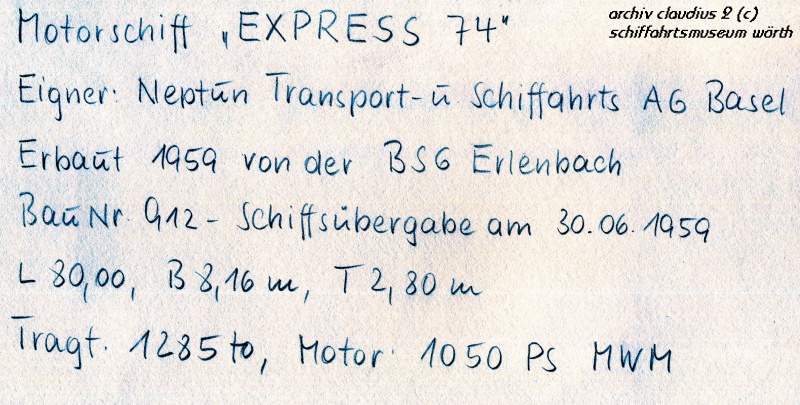 archiv claudius 2 (c)
schiffahrtsmuseum wörth
Motorschiff „EXPRESS 74"
Eigner: Neptun Transport- u Schiffahrts AG Basel
Erbaut 1959 von der BSG Erlenbach
Bau Nr. 912 - Schiffsübergabe am 30.06.1959
L 80,00, B 8,16 m, T 2,80 m
Tragf. 1285 to, Motor: 1050 PS MWM